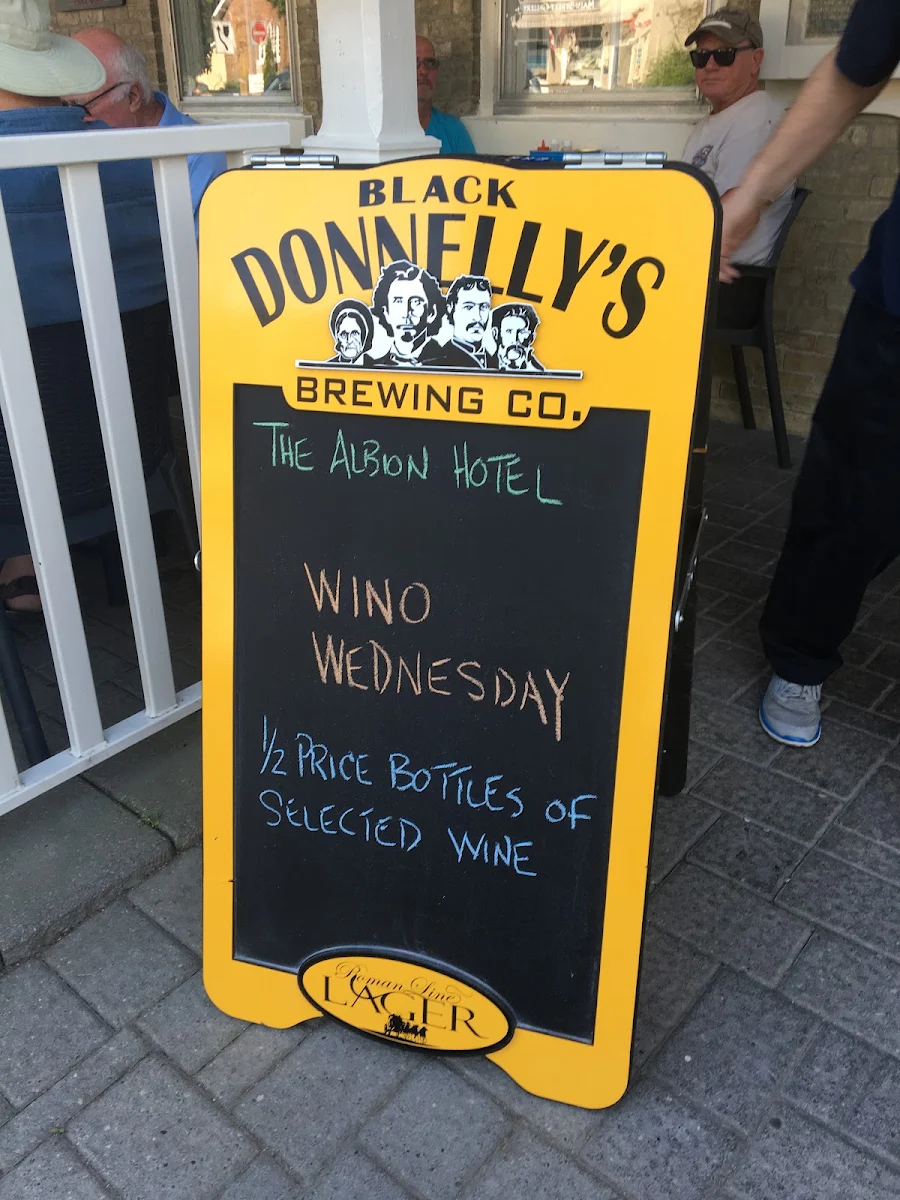 BLACK
DONNELLY'S
BREWING CO.
THE ALBION HOTEL
WINO
WEDNESDAY
1/2 PRICE BOTTLES OF
SELECTED WINE
Roman Line
LAGER